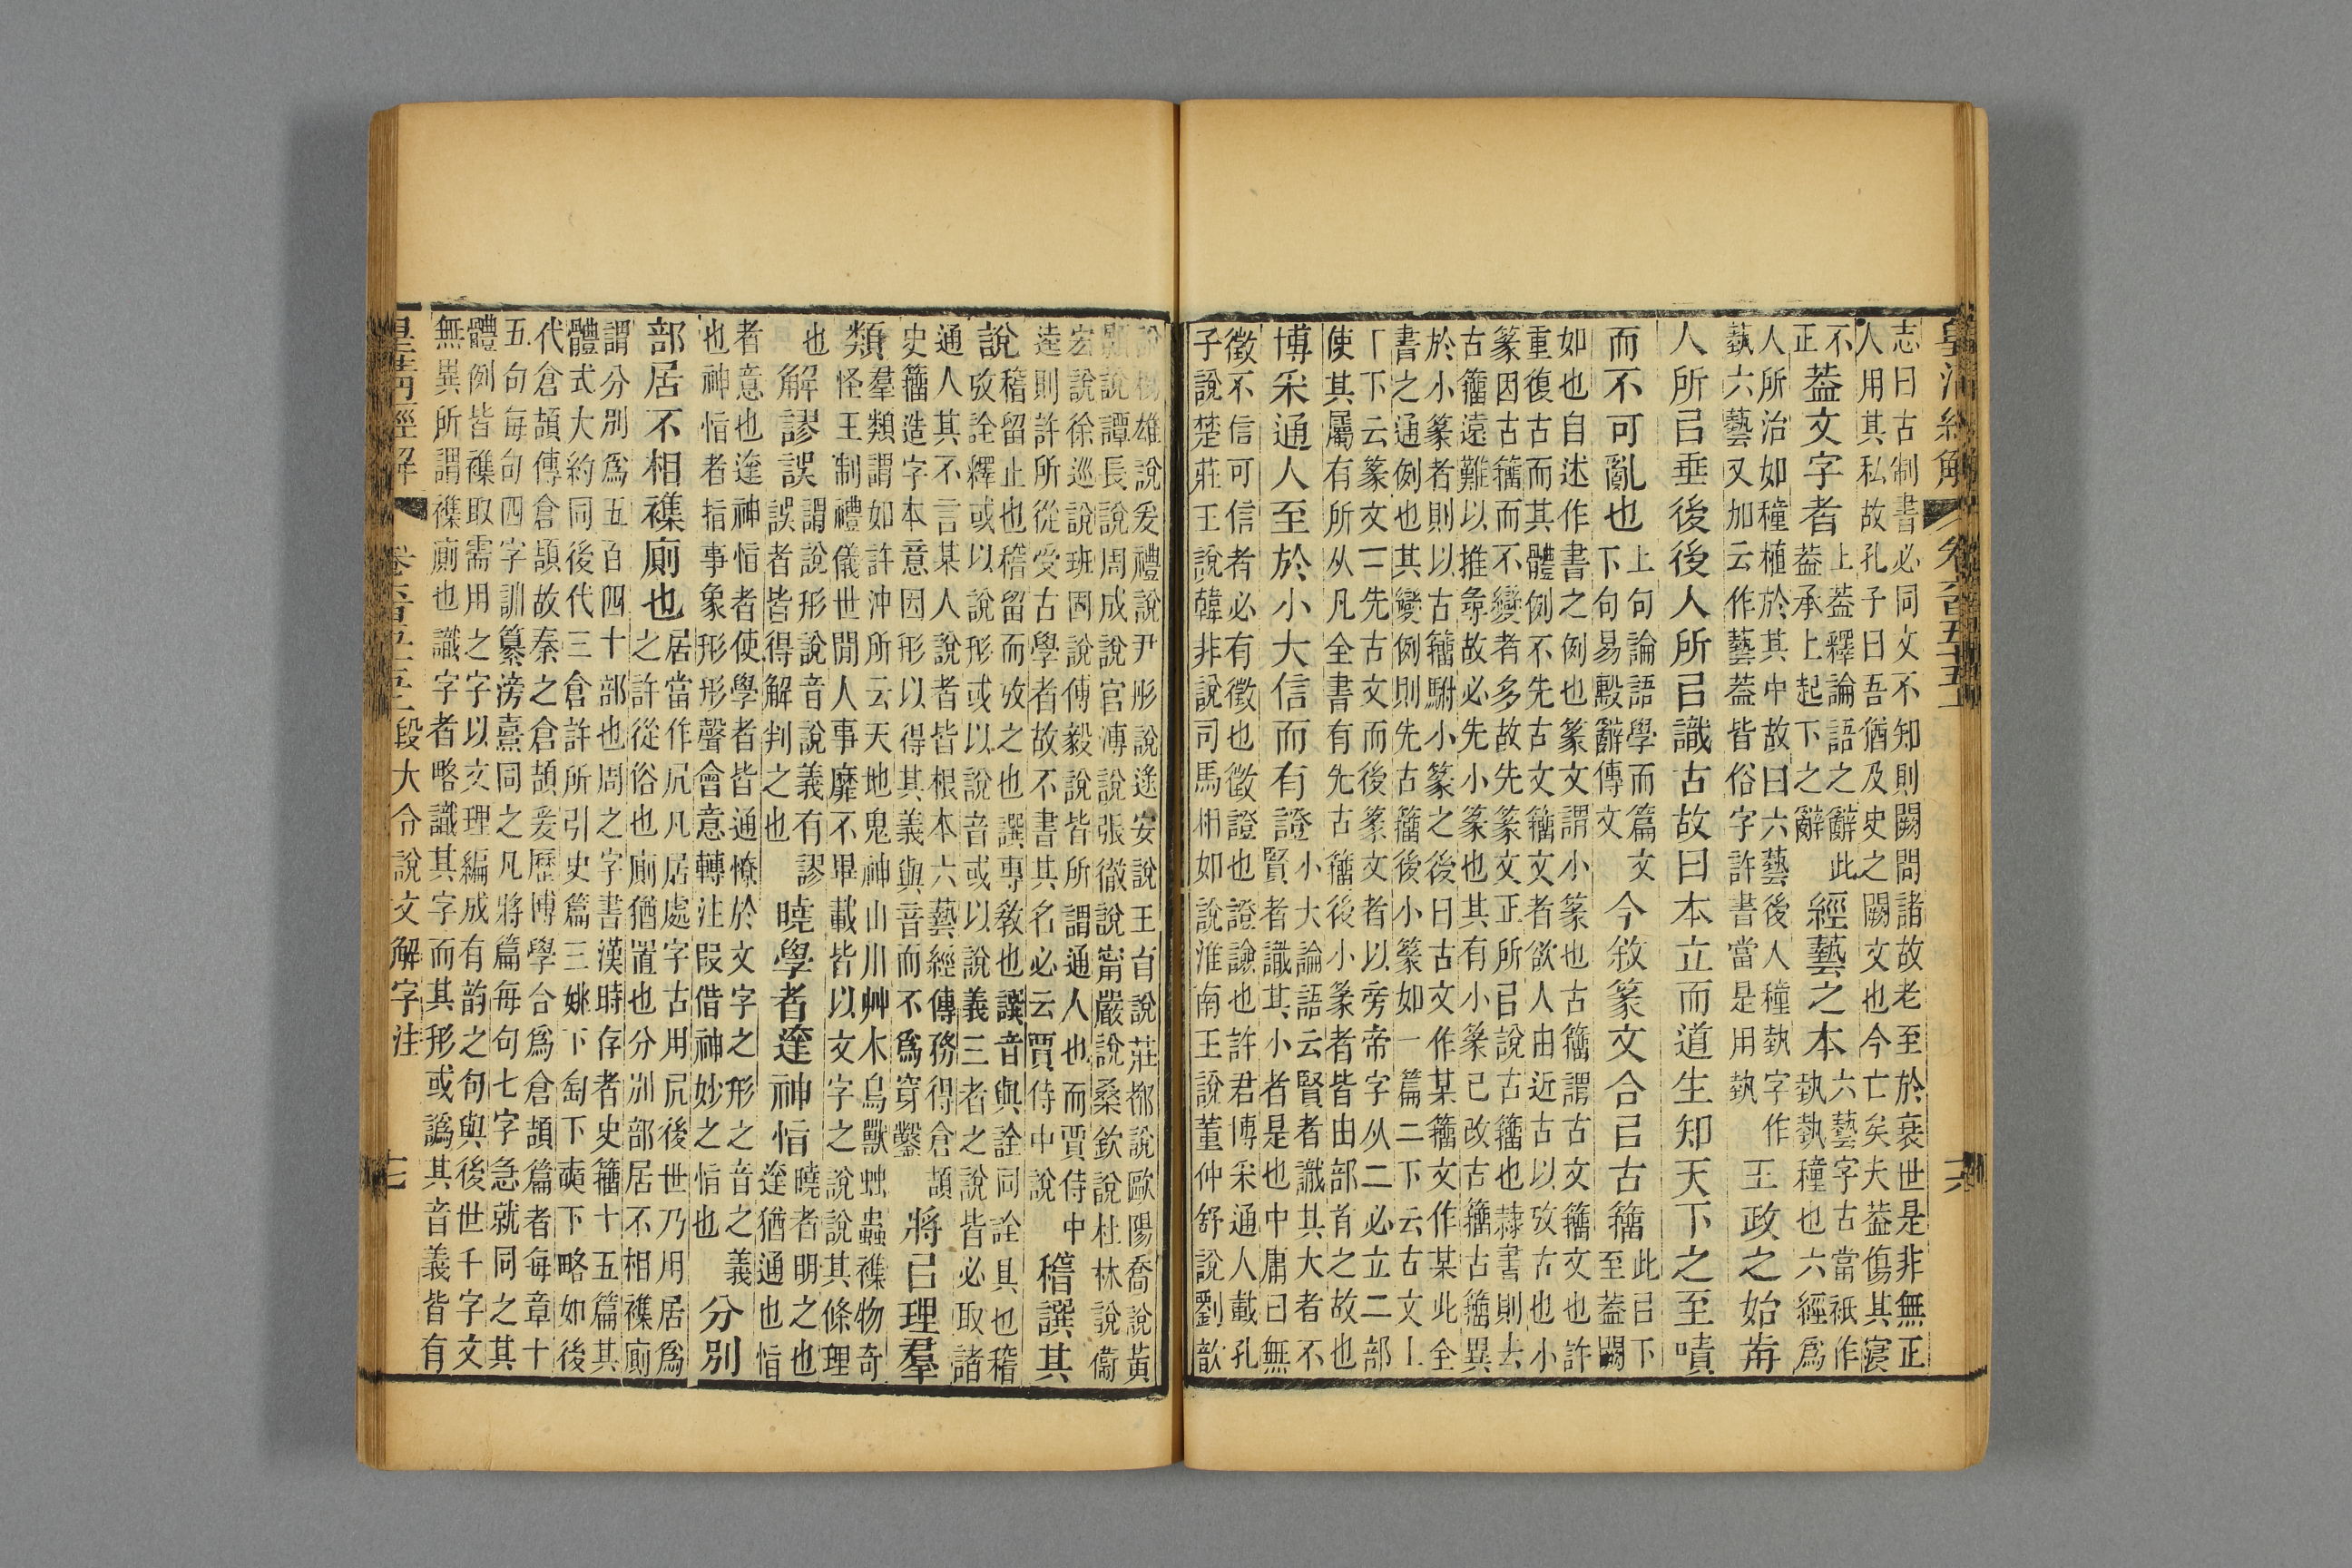 皇清經解 卷六百五十五 十六
志曰古制書必同文不知則闕問諸故老至於衰世是非無正
人用其私故孔子曰吾猶及史之闕文也今亡矣夫葢傷其寖
不
正葢文字者上葢釋論語之辭此葢承上起下之辭經藝之本六藝字古當衹作埶埶種也六經爲
人所治如種植於其中故曰六藝後人種埶字作
蓺六藝又加云作藝葢皆俗字許書當是用埶王政之始歬
人所㠯垂後後人所㠯識古故曰本立而道生知天下之至嘖
而不可亂也上句論語學而篇文下句易毄辭傳文今敘篆文合㠯古籒此㠯下至葢闕
如也自述作書之例也篆文謂小篆也古籒謂古文籒文也許
重復古而其體例不先古文籒文者欲人由近古以攷古也小
篆因古籒而不變者多故先篆文正所㠯說古籒也隸書則去
古籒遠難以推尋故必先小篆也其有小篆已改古籒古籒異
於小篆者則以古籒駙小篆之後曰古文作某籒文作某此全
書之通例也其變例則先古籒後小篆如一篇二下云古文上
丅下云篆文二先古文而後篆文者以旁帝字从二必立二部
使其屬有所从凡全書有先古籒後小篆者皆由部首之故也
博采通人至於小大信而有證小大論語云賢者識其大者不賢者識其小者是也中庸曰無
徵不信可信者必有徵也徵證也證諫也許君博采通人載孔
子說楚莊王說韓非說司馬相如說淮南王說董仲舒說劉歆
說楊雄說爰禮說尹彤說逯安說王育說莊都說歐陽喬說黃
顥說譚長說周成說官溥說張徹說甯嚴說桑欽說杜林說衞
宏說徐巡說班固說傅毅說皆所謂通人也而賈侍中
逵則許所從受古學者故不書其名必云賈侍中說稽譔其
說稽留止也稽留而攷之也譔專敎也譔音與詮同詮具也稽攷詮釋或以說形或以說音或以說義三者之說皆必取諸
通人其不言某人說者皆根本六藝經傳務得倉頡
史籒造字本意因形以得其義與音而不爲穿鑿將㠯理羣
類羣類謂如許沖所云天地鬼神山川艸木鳥獸䖵蟲襍物奇怪王制禮儀世閒人事靡不畢載皆以文字之說說其條理
也解謬誤謂說形說音說義有謬誤者皆得解判之也曉學者達神恉曉者明之也達猶通也恉
者意也達神恉者使學者皆通憭於文字之形之音之義
也神恉者指事象形形聲會意轉注叚借神妙之恉也分別
部居不相襍廁也居當作凥凡居處字古用凥後世乃用居爲之許從俗也廁猶置也分別部居不相襍廁
謂分別爲五百四十部也周之字書漢時存者史籒十五篇其
體式大約同後代三倉許所引史篇三姚下匋下奭下略如後
代倉頡傳倉頡故秦之倉頡爰歷博學合爲倉頡篇者每章十
五句每句四字訓纂滂熹同之凡將篇每句七字急就同之其
體例皆襍取需用之字以文理編成有韵之句與後世千字文
無異所謂襍廁也識字者略識其字而其形或譌其音義皆有
皇淸經解 卷六百五十五上 段大令說文解字注 十七